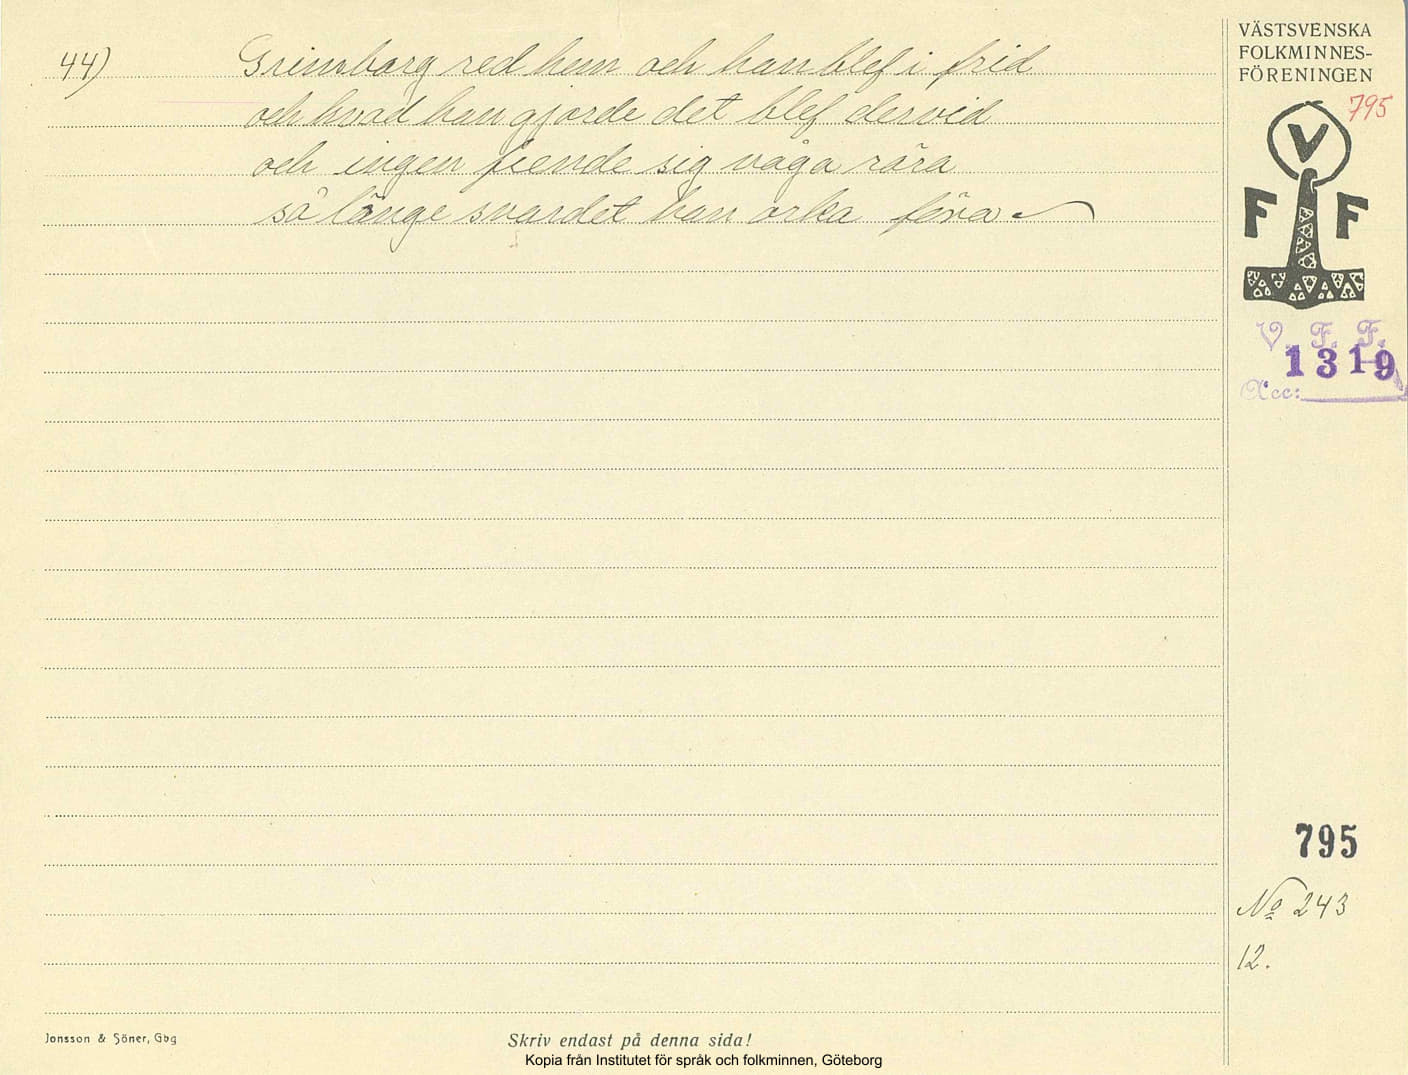 44) Grimborg red hem och han blef i frid
och hvad han gjorde det blef dervid
och ingen fiende sig våga röra
så länge svardet han orka föra
VÄSTSVENSKA
FOLKMINNES-
FÖRENINGEN
795
V
F F
V. F. F.
1319
Acc:
795
No 243
12.
Jonsson & Söner, Gbg
Skriv endast på denna sida!
Kopia från Institutet för språk och folkminnen, Göteborg